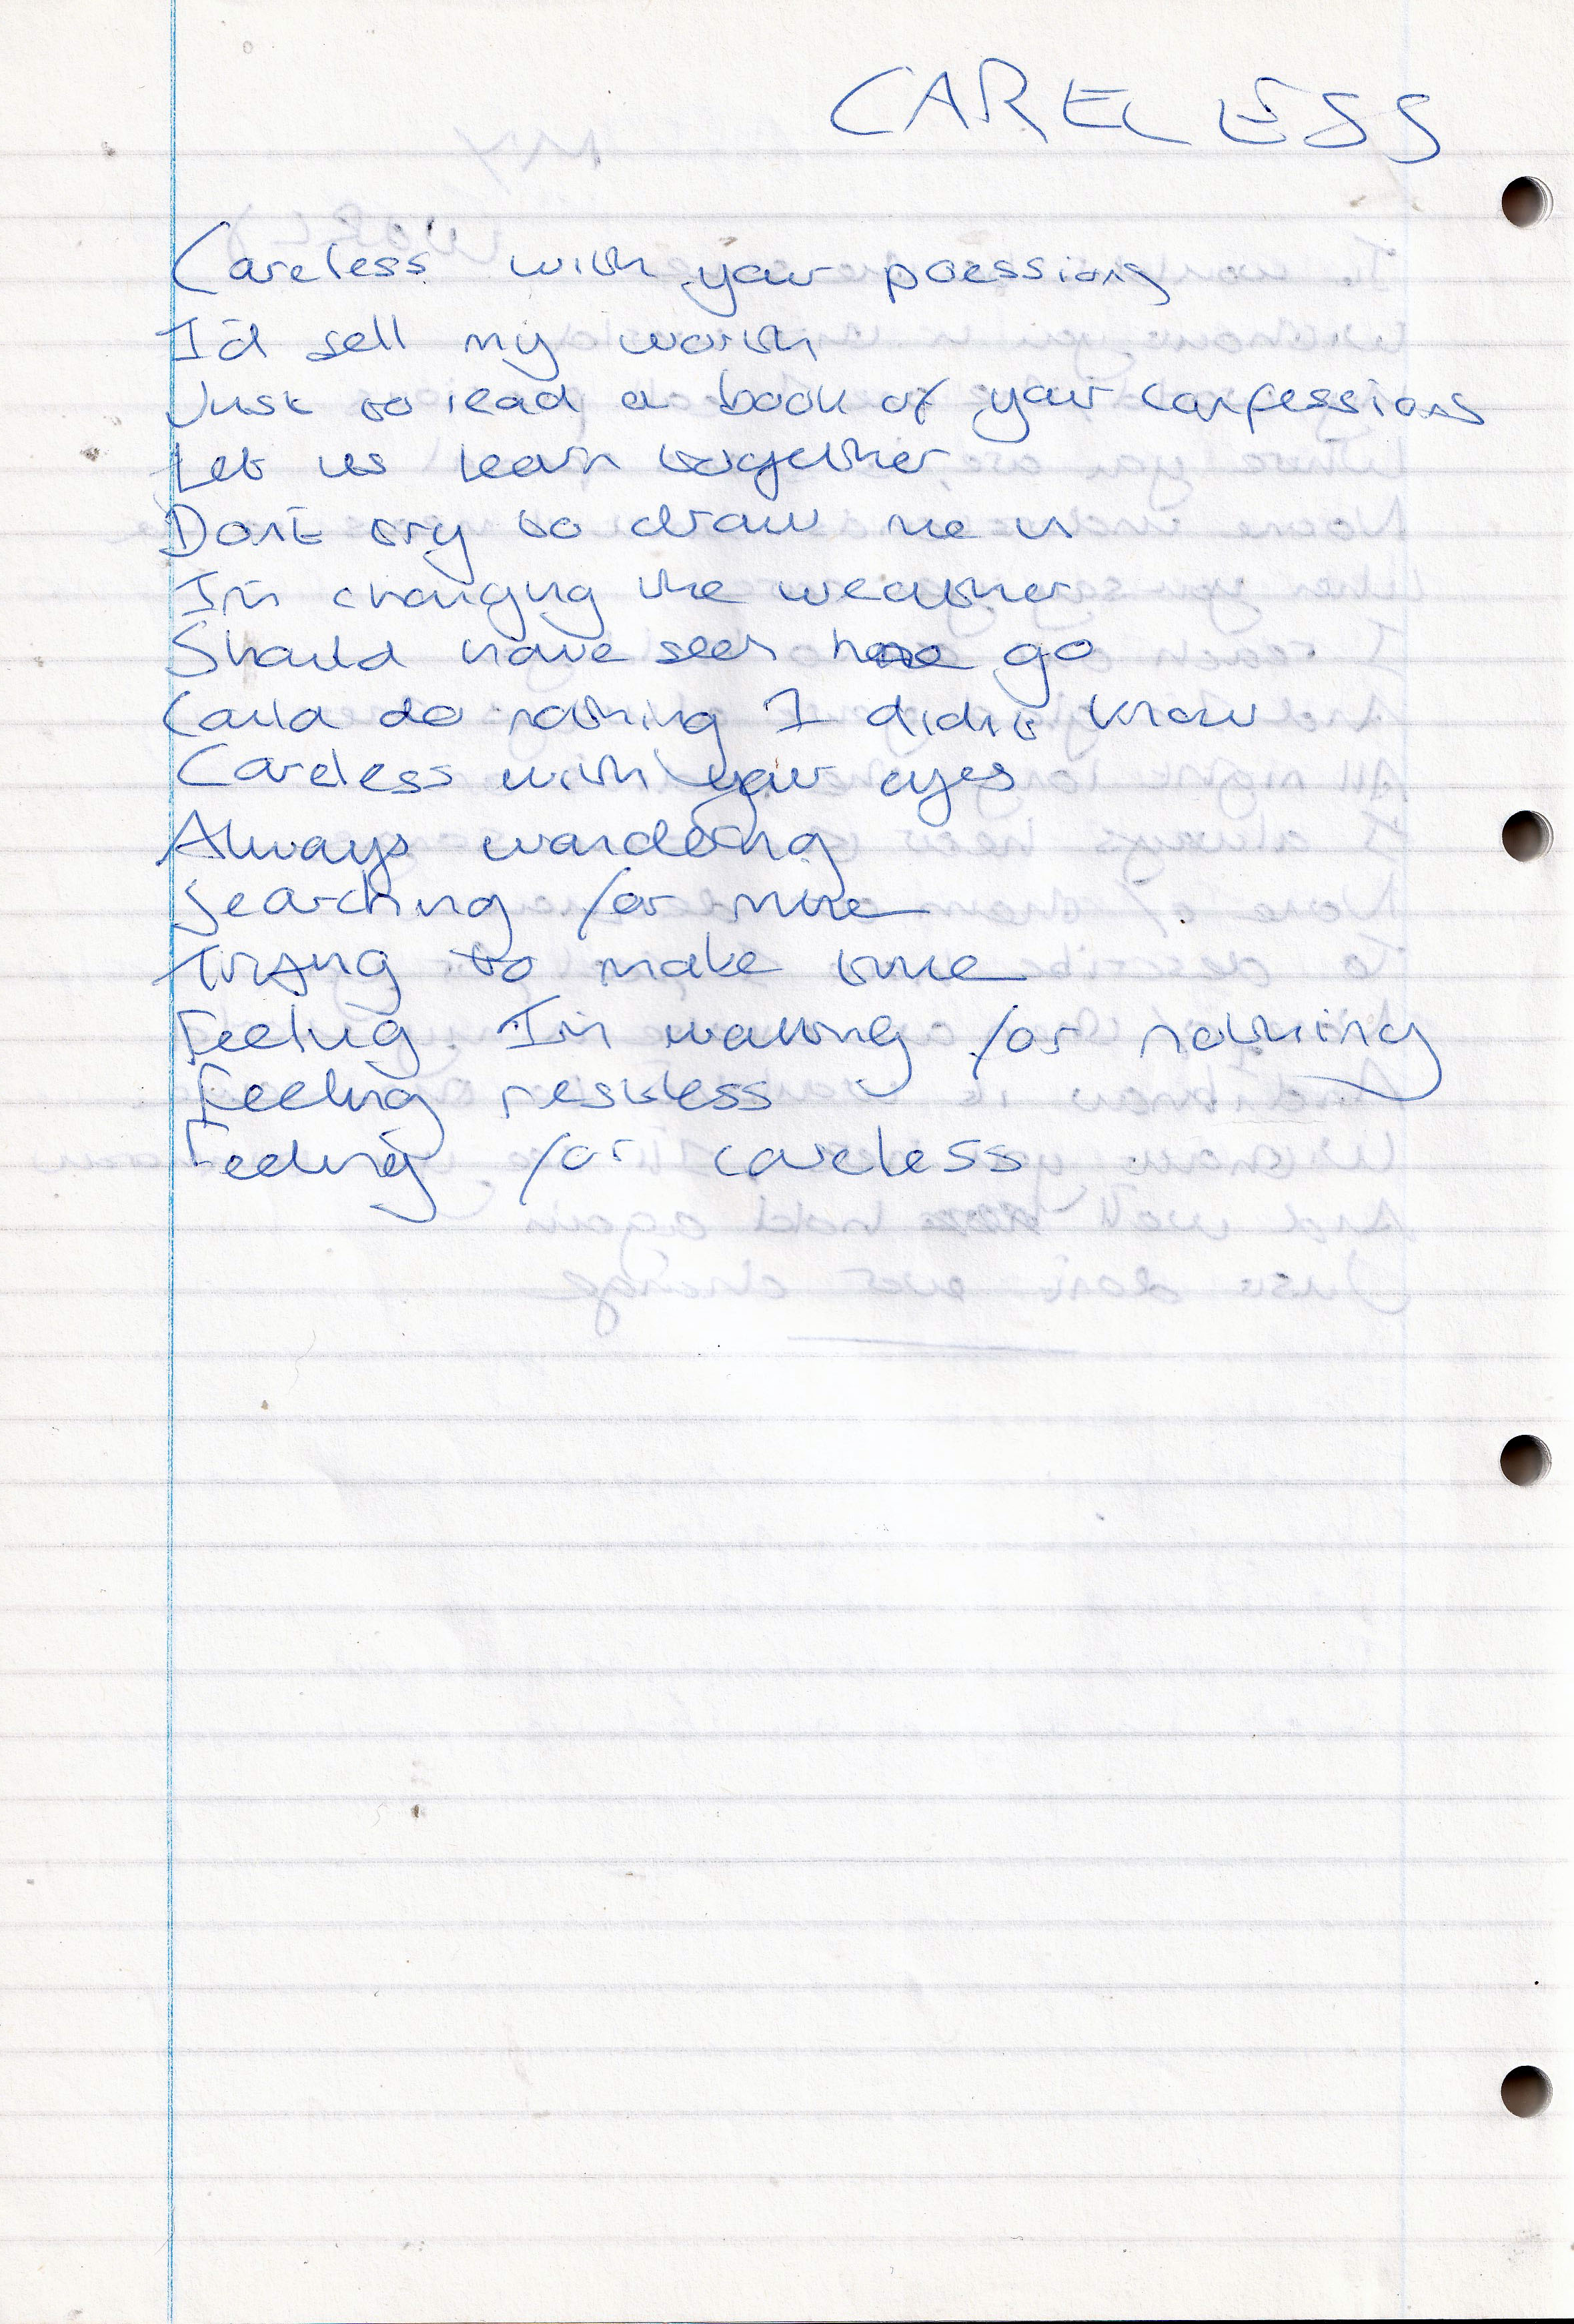 CARELESS
Careless with your poessions
I'd sell my worth
Just to read a book of your confessions
Let us learn together
Don't try to draw me in
I'm changing the weather
Should have seen go
Could do nothing I didn't know
Careless with your eyes
Always wandering
Searching for mine
Trying to make time
Feeling I'm waiting for nothing
Feeling restless
Feeling for careless